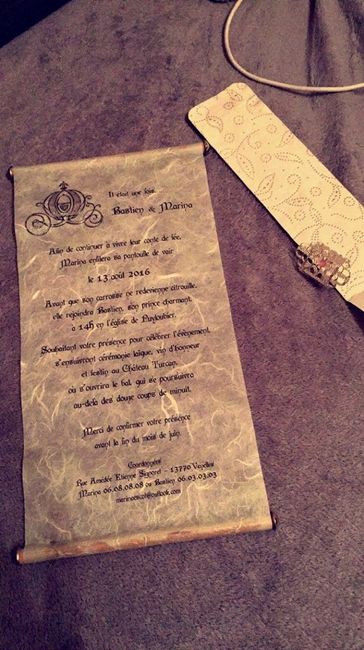 Il était une fois,
Bastien & Marina
Afin de continuer à vivre leur conte de fée,
Marina enfilera sa pantoufle de vair
le 13 août 2016
Avant que son carrosse ne redevienne citrouille,
elle rejoindra Bastien, son prince charmant,
à 14h en l'église de Puyloubier.
Souhaitant votre présence pour célébrer l'évènement,
s'ensuivront cérémonie laïque, vin d'honneur
et festin au Château Turcan,
où s'ouvrira le bal, qui se poursuivra
au-delà des douze coups de minuit.
Merci de confirmer votre présence
avant la fin du mois de juin.
Coordonnées
Rue Amédée Etienne 13770 Venelles
Marina 06.08.08.08 ou Bastien 06.03.03.03
@outlook.com